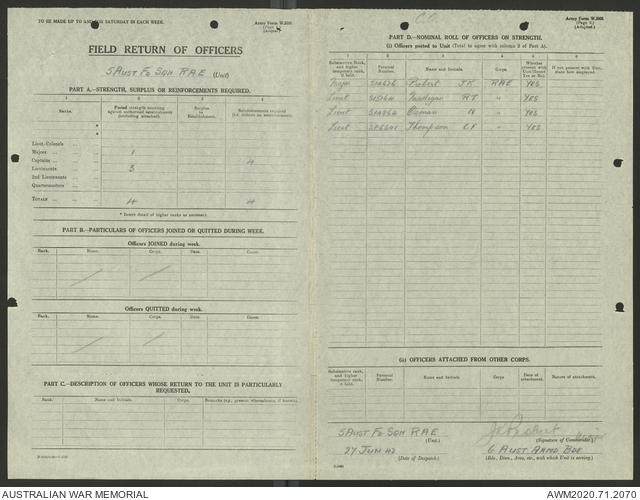 TO BE MADE UP TO AND FOR SATURDAY IN EACH WEEK.
Army Form W.3008
FIELD RETURN OF OFFICERS
5 AUST FD SQN RAE (Unit)
PART A.—STRENGTH, SURPLUS OR REINFORCEMENTS REQUIRED.
1 2 3 4
Ranks. Posted strength counting against authorized establishments (including attached). Surplus to Establishment. Reinforcements required
*
*
Lieut.-Colonels
Majors 1
Captains 4
Lieutenants 3
2nd Lieutenants
Quartermasters
TOTALS 4 4
* Insert detail of higher ranks as necessary.
PART B.—PARTICULARS OF OFFICERS JOINED OR QUITTED DURING WEEK.
Officers JOINED during week.
Rank. Name. Corps. Date. Cause.
Officers QUITTED during week.
Rank. Name. Corps. Date. Cause.
PART C.—DESCRIPTION OF OFFICERS WHOSE RETURN TO THE UNIT IS PARTICULARLY REQUESTED.
Rank. Name and Initials. Corps. Remarks (e.g., present whereabouts, if known).
Army Form W.3008
(Adapted.)
PART D.—NOMINAL ROLL OF OFFICERS ON STRENGTH.
(i) Officers posted to Unit (Total to agree with column 2 of Part A).
1 2 3 4 5 6
Substantive Rank, and higher temporary rank, if held. Personal Number. Name and Initials. Corps. Whether present with Unit (Insert Yes or No). If not present with Unit, state how employed.
Major J.K. RAE YES
Lieut RT " YES
Lieut N " YES
Lieut Thompson C.F. " YES
(ii) OFFICERS ATTACHED FROM OTHER CORPS.
Substantive rank, and higher temporary rank, if held. Personal Number. Name and Initials. Corps Date of attachment. Nature of attachment.
5 AUST FD SQN RAE
(Unit.) (Signature of Commander.)
27 JUN 43 6 AUST ARMD BDE
(Date of Despatch.) (Bde., Divn., Area, etc., with which Unit is serving.)
AUSTRALIAN WAR MEMORIAL AWM2020.71.2070